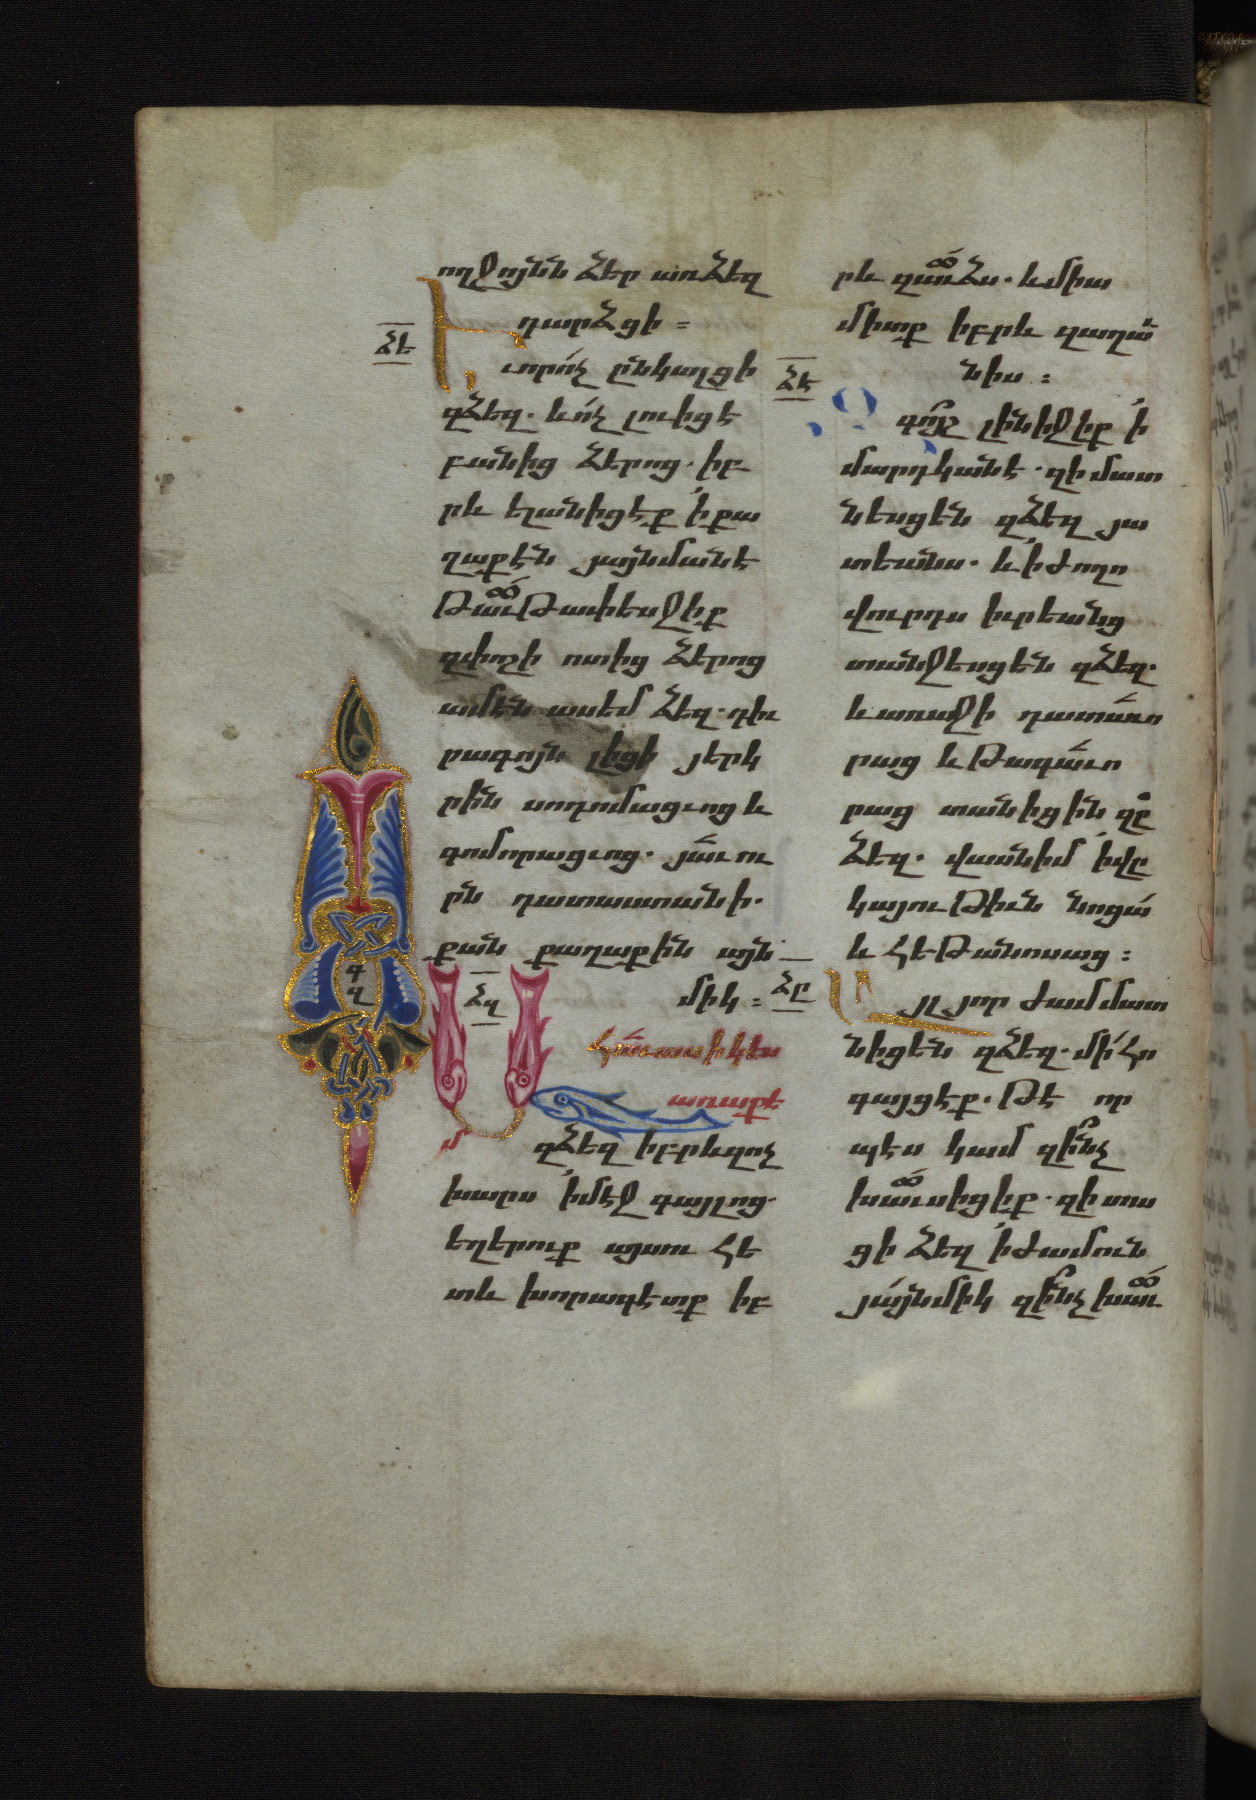 ողջոյնն ձեր առ ձեզ
դարձցի ։
ձե
Եւ որ ոչ ընկալցի
զձեզ. և ոչ լուիցէ
բանից ձերոց. իբ
րև ելանիցէք ի քա
ղաքէն յայնմանէ
թաւթափեսջիք
զփոշի ոտից ձերոց
ամէն ասեմ ձեզ. դիւ
րագոյն լիցի յերկ
րին սոդոմացւոց և
գոմորացւոց. յաւու
րն դատաստանի.
քան քաղաքին այն
միկ ։
գ
զ
ձզ
Ահաւասիկ ես
առաքե
մ զձեզ իբրև զոչ
խարս ի մէջ գայլոց.
եղերուք այսու հե
տև խորագէտք իբ
րև զաւձս. և միա
միտք իբրև զաղաւ
նիս ։
ձէ
Զգոյշ լինիջիք ի
մարդկանէ. զի մատ
նեսցեն զձեզ յա
տեանս. և ի ժողո
վուրդս իւրեանց
տանջեսցեն զձեզ.
և առաջի դատաւո
րաց և թագաւո
րաց տանիցին զը
ձեզ. վասն իմ ի վը
կայութիւն նոցա
և հեթանոսաց ։
ձը
Այլ յորժամ մատ
նիցեն զձեզ. մի հո
գայցէք. թէ որ
պէս կամ զինչ
խաւսիցիք. զի տա
ցի ձեզ ի ժամուն
յայնմիկ զինչ խաւ